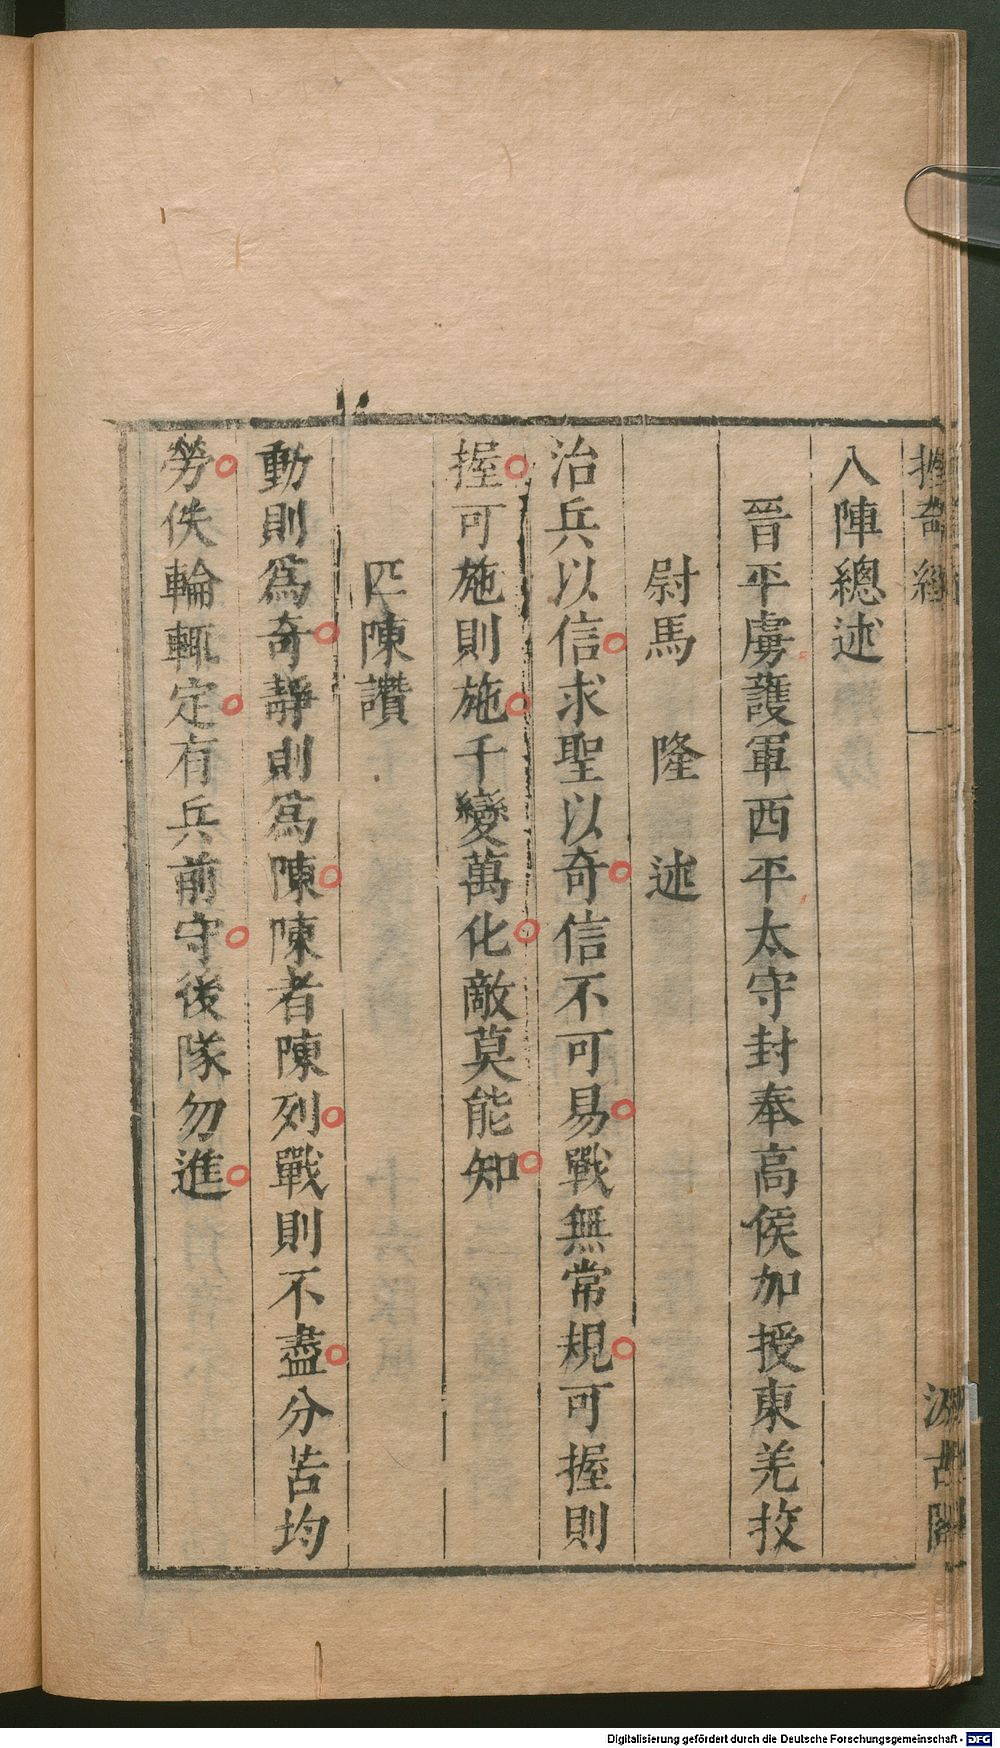 握奇經 一 汲古閣
八陣總述
晉平虜護軍西平太守封奉高侯加授東羌挍
尉馬 隆 述
治兵以信求聖以奇信不可易戰無常規可握則
握可施則施千變萬化敵莫能知
匹陳讚
動則為奇靜則為陳陳者陳列戰則不盡分苦均
勞佚輪輒定有兵前守後隊勿進
Digitalisierung gefördert durch die Deutsche Forschungsgemeinschaft - DFG